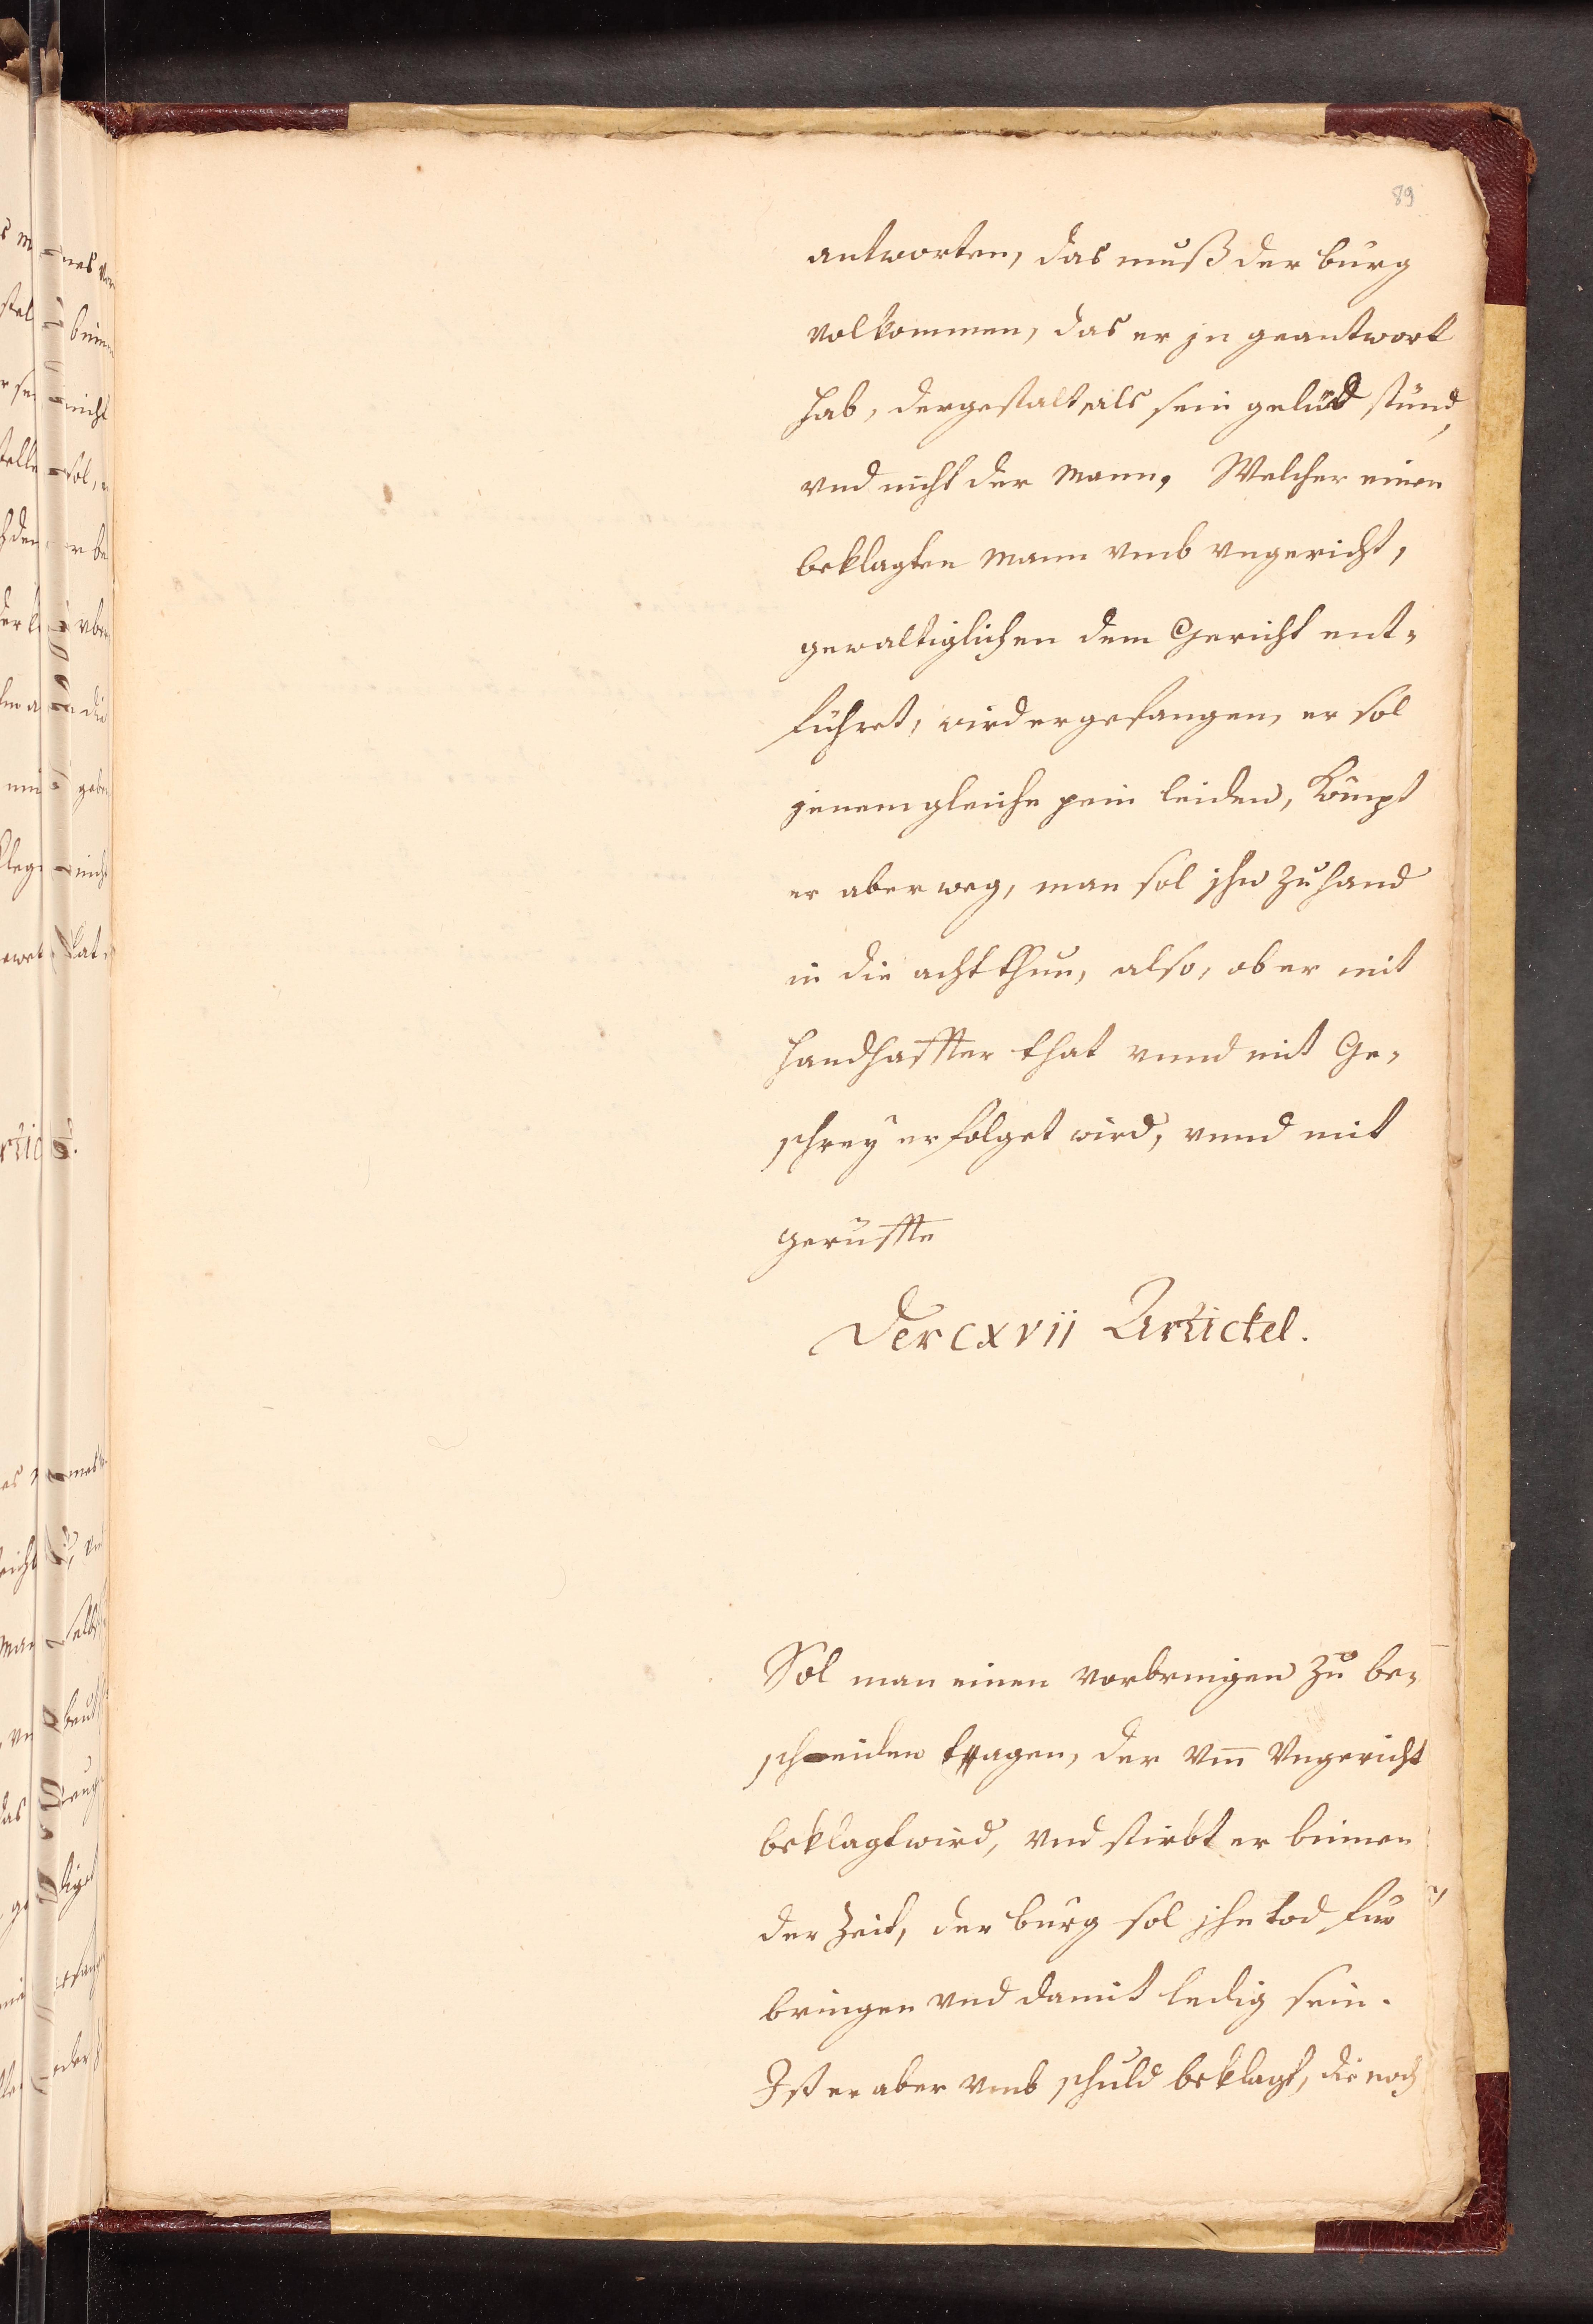 89
antworten, das muß der burg
volkommen, das er jn geantwort
hab, dergestalt, als sein gelüd stünd,
vnd nicht der mann, Welcher einen
beklagten mann vmb vngericht,
gewaltiglichen dem Gericht ent-
führet, wird er gefangen, er sol
jenem gleiche pein leiden, Kümpt
er aber weg, man sol jhn zu hand
in die acht thun, also, ob er mit
handhaffter that vnnd mit Ge-
schrey erfolget wird, vnnd mit
gerüffte
Der cxvii Artickel.
Sol man einen vorbringen zu be-
scheiden tagen, der vm̅ Vngericht
beklagt wird, vnd stirbt er binnen
der Zeit, der burg sol jhn tod fur
bringen vnd damit ledig sein.
Ist er aber vmb schuld beklagt, die noch